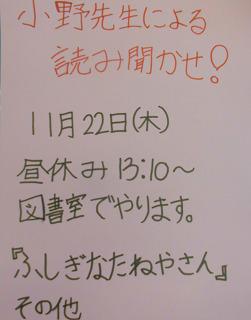 小野先生による
読み聞かせ!
11月22日(木)
昼休み 13:10~
図書室でやります。
『ふしぎなたねやさん』
その他